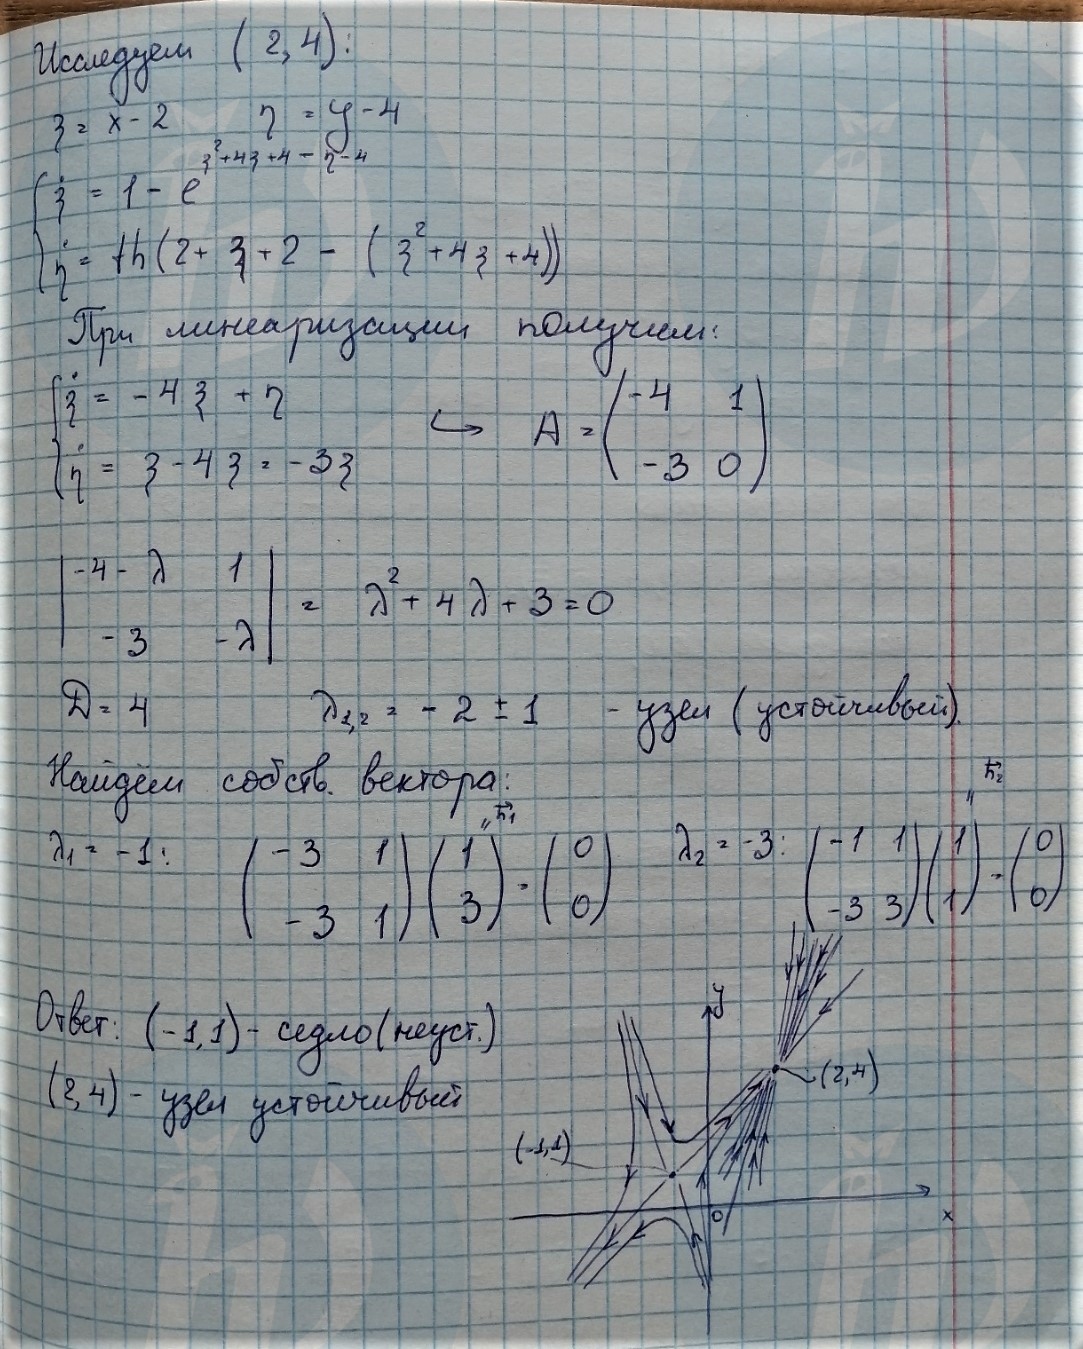 Исследуем (2,4):
ξ = x - 2 η = y - 4
ξ̇ = 1 - e^(ξ²+4ξ+4-η-4)
η̇ = th(2+ξ+2 - (ξ²+4ξ+4))
При линеаризации получим:
ξ̇ = -4ξ + η
η̇ = ξ - 4ξ = -3ξ
↪ A = (-4 1
-3 0)
|-4-λ 1
-3 -λ| = λ² + 4λ + 3 = 0
D = 4 λ₁,₂ = -2 ± 1 - узел (устойчивый).
Найдём собств. вектора:
λ₁ = -1: (-3 1
-3 1) (1
3) = (0
0)
" h⃗₁
λ₂ = -3: (-1 1
-3 3) (1
1) = (0
0)
" h⃗₂
Ответ: (-1,1) - седло (неуст.)
(2,4) - узел устойчивый
y
(2,4)
(-1,1)
0
x